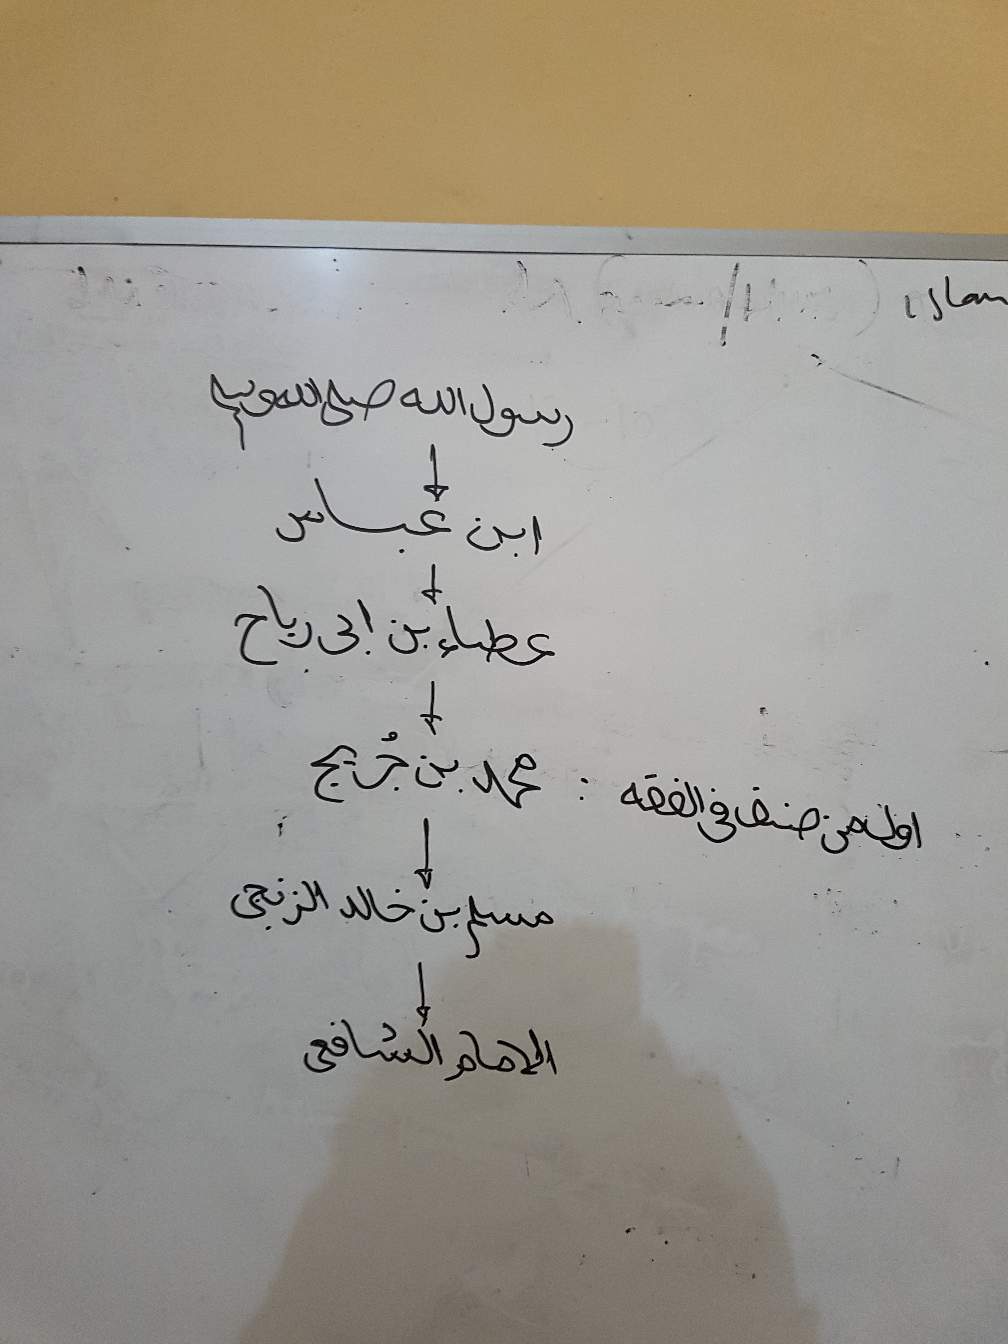 islam
رسول الله صلى الله وسلم
ابن عباس
عطاء بن ابى رباح
محمد بن جُريج : اول من صنف فى الفقه
مسلم بن خالد الزنجى
الامام الشافعى